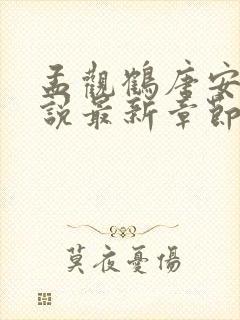 孟觀鶴唐安
說最新章節
莫夜憂傷